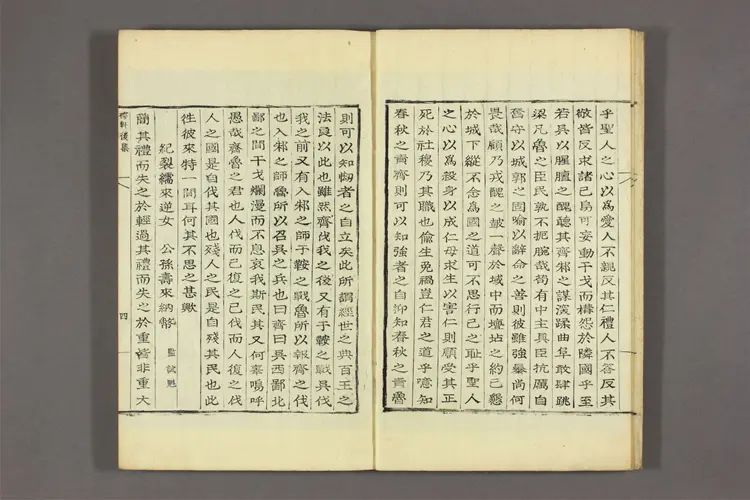 乎聖人之心以爲愛人不親反其仁禮人不答反其
敬皆反求諸己烏可妄動干戈而構怨於隣國乎至
若吳以腥膻之醜聽其齊邾之謀演蹂曲阜敢肆跳
梁凡魯之臣民孰不扼腕哉苟有中主具臣抗厲自
奮守以城郭之固喻以辭命之善則彼雖強暴尚何
畏哉顧乃戎醜之皷一聲於域中而壇坫之約已懇
於城下縱不念爲國之道可不思行己之耻乎聖人
之心以爲殺身以成仁毋求生以害仁則順受其正
死於社稷乃其職也偸生免禍豈仁君之道乎噫知
春秋之責齊則可以知強者之自抑知春秋之責魯
則可以知弱者之自立矣此所謂經世之典百王之
法良以此也雖然齊伐我之後又有于艾之戰具伐
我之前又有入邾之師于鞍之戰魯所以報齊之伐
也入邾之師魯所以召吳之兵也曰齊曰吳西鄙北
鄙之間干戈爛漫而不息哀我斯民其又何辜嗚呼
愚哉齊魯之君也人伐而己復之己伐而人復之伐
人之國是自伐其國也殘人之民是自殘其民也此
徃彼來特一間耳何其不思之甚歟
紀裂繻來逆女 公孫壽來納幣 監試魁
簡其禮而失之於輕過其禮而失之於重者非重大
後集
四